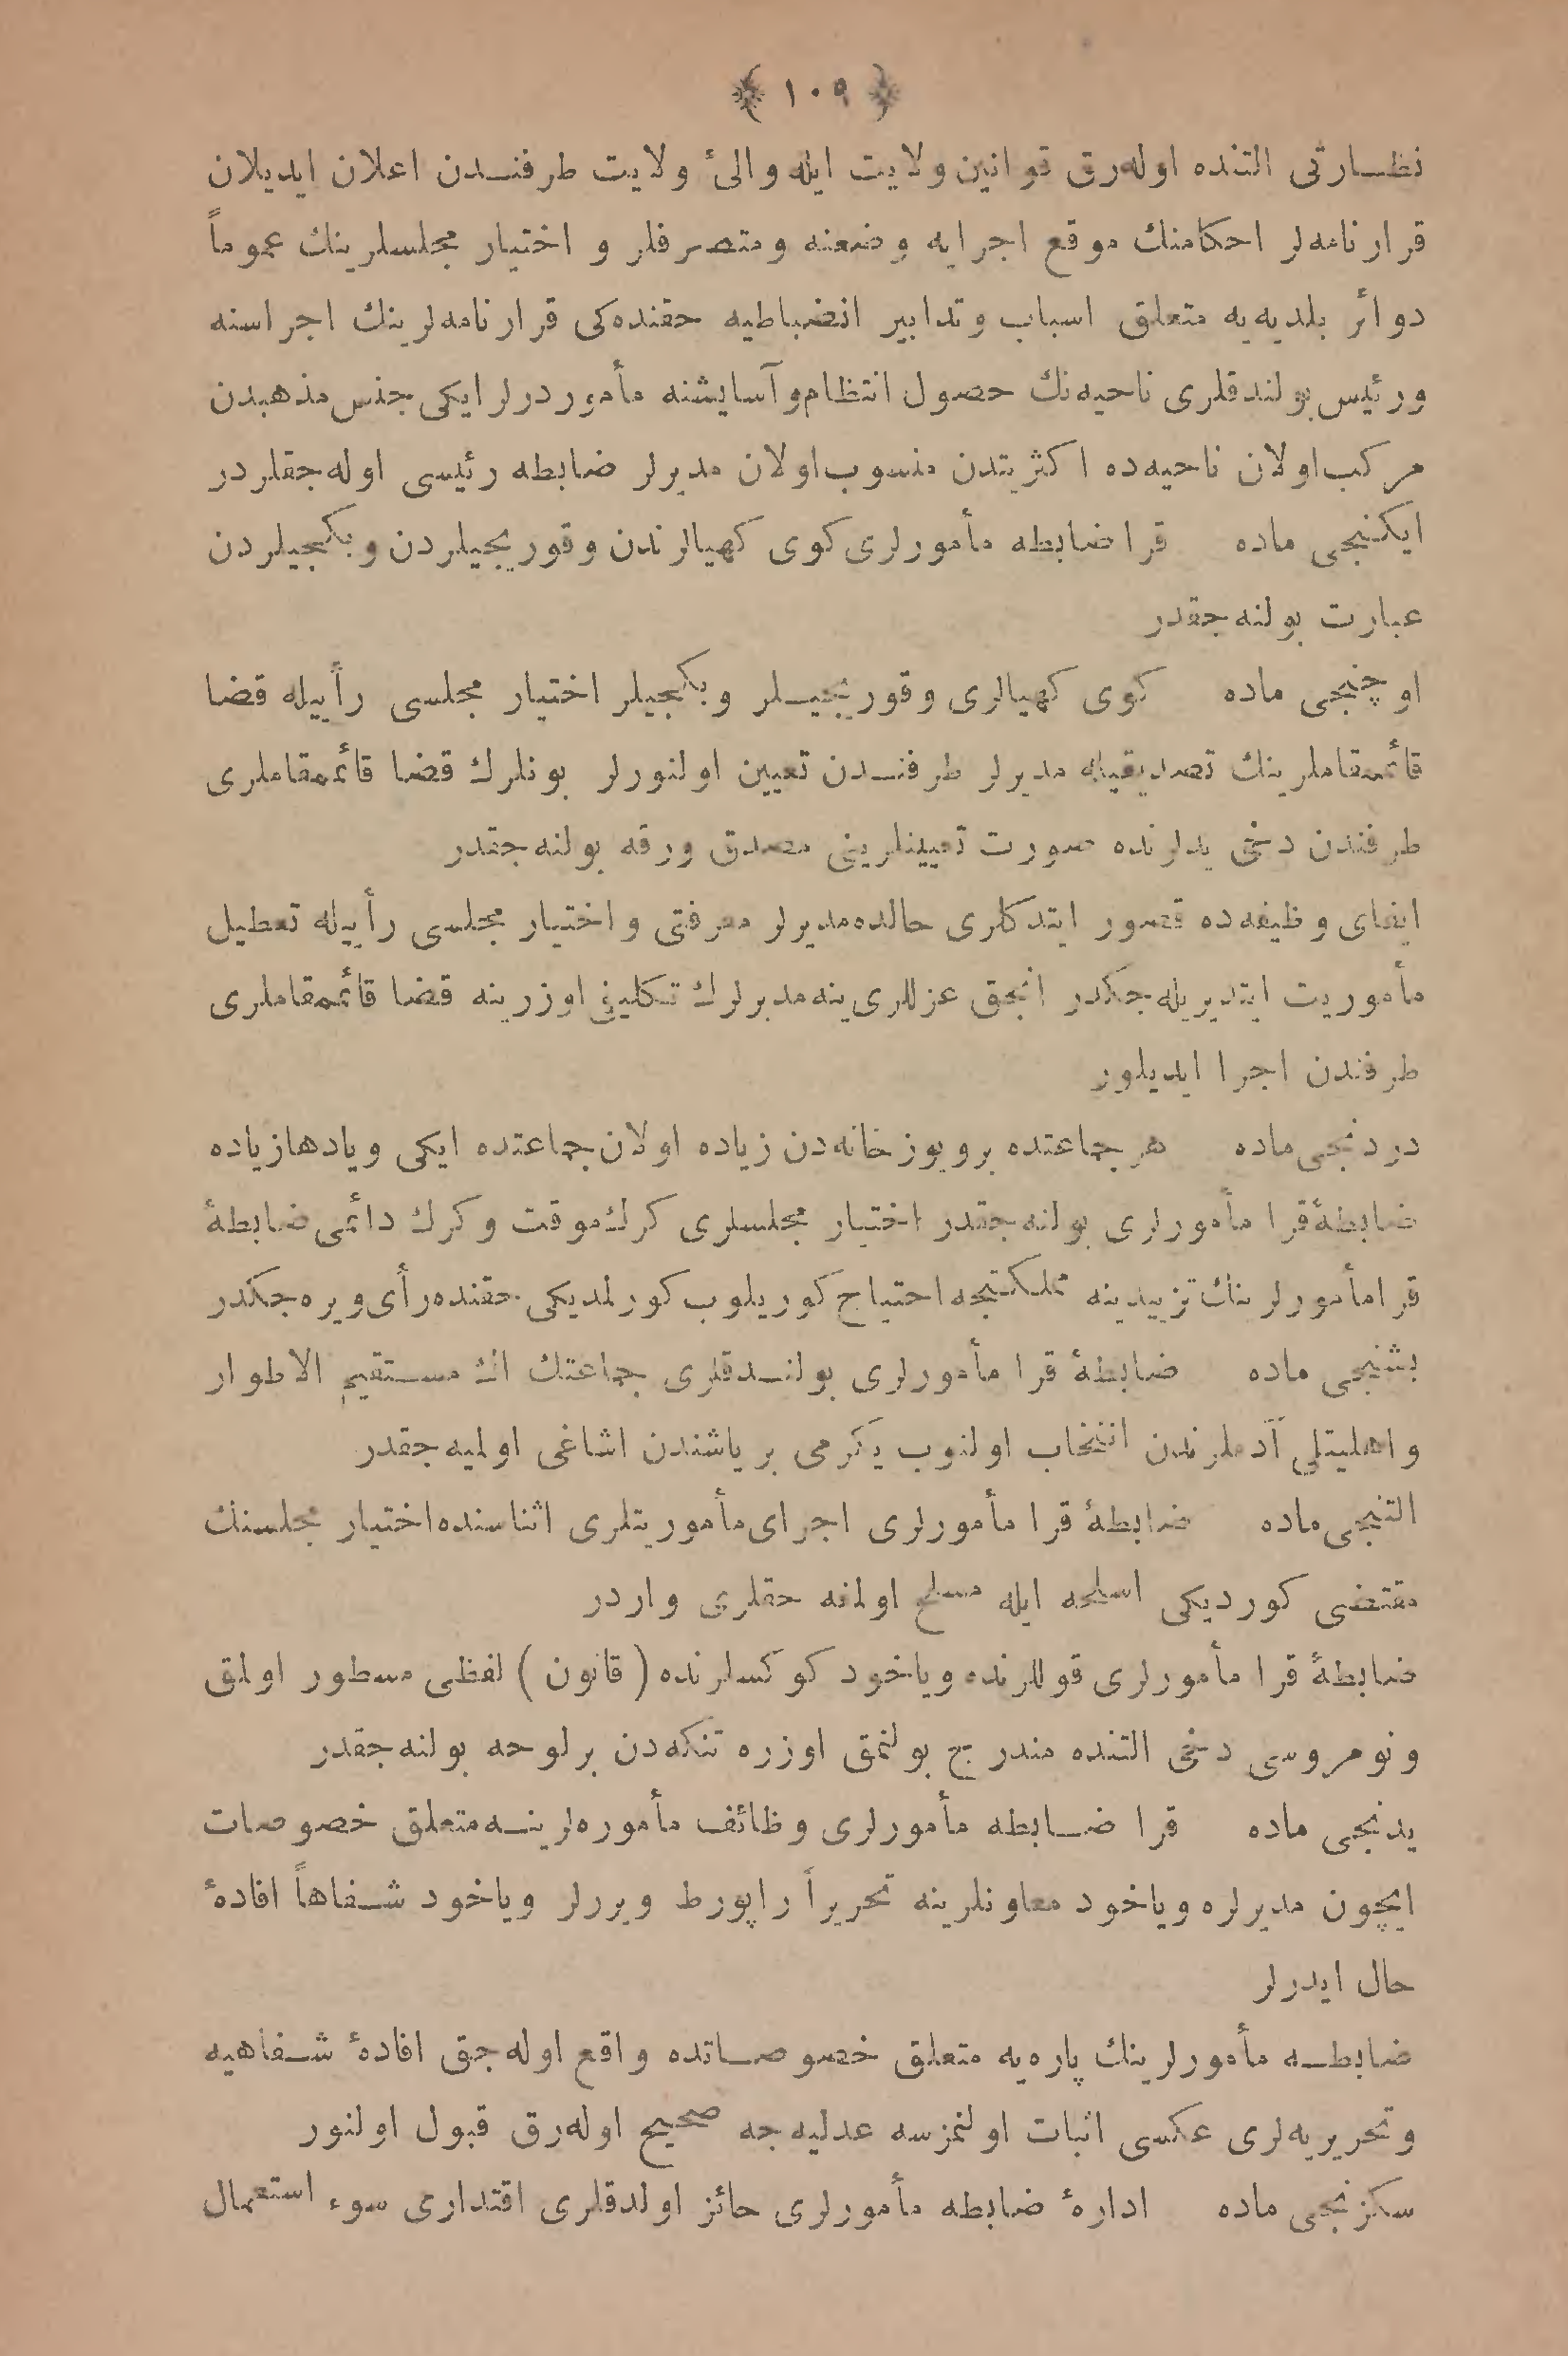 ﴿ ١٠٩ ﴾
نظارتى التنده اوله‌رق قوانين ولايت ايله والئ ولايت طرفندن اعلان ايديلان
قرارنامه‌لر احكامنك موقع اجرايه وضعنه ومتصرفلر و اختيار مجلسلرينك عموماً
دوائر بلديه‌يه متعلق اسباب وتدابير انضباطيه حقنده‌كى قرارنامه‌لرينك اجراسنه
ورئيس بولندقلرى ناحيه‌نك حصول انتظام وآسايشنه مأموردرلر ايكى جنس مذهبدن
مركب اولان ناحيه‌ده اكثريتدن منسوب اولان مديرلر ضابطه رئيسى اوله‌جقلردر
ايكنجى ماده قرا ضابطه مأمورلرى كوى كهيالرندن وقوريجيلردن وبكجيلردن
عبارت بولنه‌جقدر
اوچنجى ماده كوى كهيالرى وقوريجيلر وبكجيلر اختيار مجلسى رأييله قضا
قائممقاملرينك تصديقيله مديرلر طرفندن تعيين اولنورلر بونلرك قضا قائممقاملرى
طرفندن دخى يدلرنده صورت تعيينلرينى مصدق ورقه بولنه‌جقدر
ايفاى وظيفه‌ده قصور ايتدكلرى حالده مديرلر معرفتى واختيار مجلسى رأييله تعطيل
مأموريت ايتديريله‌جكدر انجق عزللرى ينه مديرلرك تكليفى اوزرينه قضا قائممقاملرى
طرفندن اجرا ايديلور
دردنجى ماده هر جماعتده بر ويوز خانه‌دن زياده اولان جماعتده ايكى ويا دها زياده
ضابطهٔ قرا مأمورلرى بولنه‌جقدر اختيار مجلسلرى كرك موقت وكرك دائمى ضابطهٔ
قرا مأمورلرينك تزييدينه مملكتجه احتياج كوريلوب كورلمديكى حقنده رأى ويره‌جكدر
بشنجى ماده ضابطهٔ قرا مأمورلرى بولندقلرى جماعتك اك مستقيم الاطوار
واهليتلى آدملرندن انتخاب اولنوب يكرمى بر ياشندن اشاغى اولميه‌جقدر
التنجى ماده ضابطهٔ قرا مأمورلرى اجراى مأموريتلرى اثناسنده اختيار مجلسنك
مقتضى كورديكى اسلحه ايله مسلح اولمنه حقلرى واردر
ضابطهٔ قرا مأمورلرى قوللرنده وياخود كوكسلرنده ( قانون ) لفظى مسطور اولمق
ونومروسى دخى التنده مندرج بولنمق اوزره تنكه‌دن بر لوحه بولنه‌جقدر
يدنجى ماده قرا ضابطه مأمورلرى وظائف مأموره‌لرينه متعلق خصوصات
ايچون مديرلره وياخود معاونلرينه تحريراً راپورط ويررلر وياخود شفاهاً افادهٔ
حال ايدرلر
ضابطه مأمورلرينك پاره‌يه متعلق خصوصاتده واقع اوله‌جق افادهٔ شفاهيه
وتحريريه‌لرى عكسى اثبات اولنمزسه عدليه‌جه صحيح اوله‌رق قبول اولنور
سكزنجى ماده ادارهٔ ضابطه مأمورلرى حائز اولدقلرى اقتدارى سوء استعمال